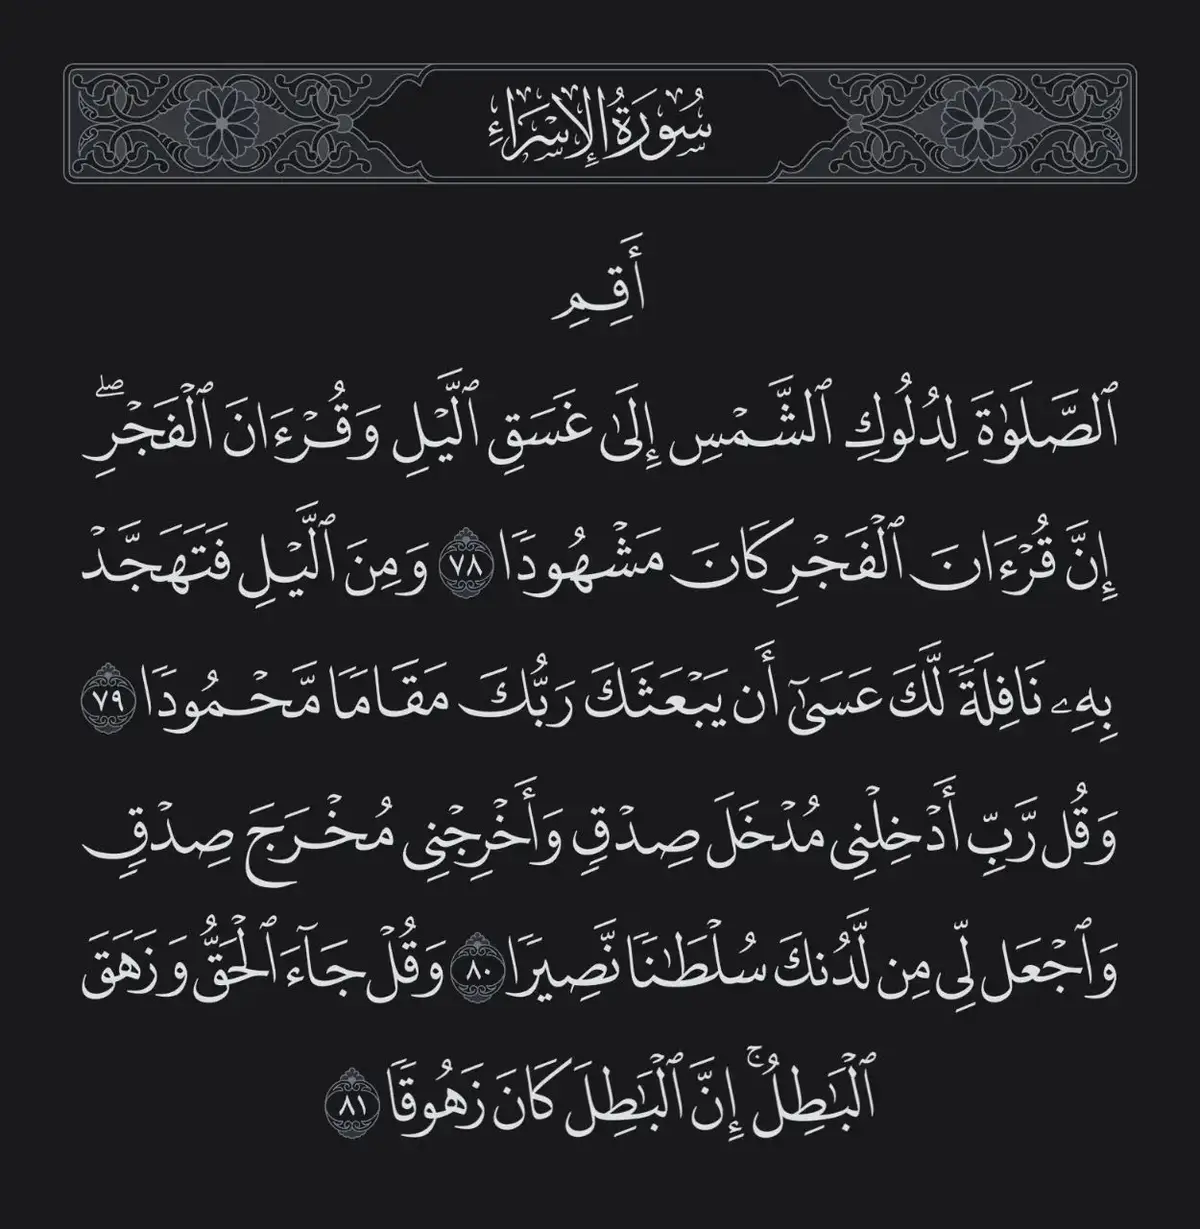 سُورَةُ الإِسْرَاءِ
أَقِمِ
ٱلصَّلَوٰةَ لِدُلُوكِ ٱلشَّمْسِ إِلَىٰ غَسَقِ ٱلَّيْلِ وَقُرْءَانَ ٱلْفَجْرِ ۖ
إِنَّ قُرْءَانَ ٱلْفَجْرِ كَانَ مَشْهُودًا ٧٨ وَمِنَ ٱلَّيْلِ فَتَهَجَّدْ
بِهِۦ نَافِلَةً لَّكَ عَسَىٰٓ أَن يَبْعَثَكَ رَبُّكَ مَقَامًا مَّحْمُودًا ٧٩
وَقُل رَّبِّ أَدْخِلْنِى مُدْخَلَ صِدْقٍ وَأَخْرِجْنِى مُخْرَجَ صِدْقٍ
وَٱجْعَل لِّى مِن لَّدُنكَ سُلْطَٰنًا نَّصِيرًا ٨٠ وَقُلْ جَآءَ ٱلْحَقُّ وَزَهَقَ
ٱلْبَٰطِلُ ۚ إِنَّ ٱلْبَٰطِلَ كَانَ زَهُوقًا ٨١